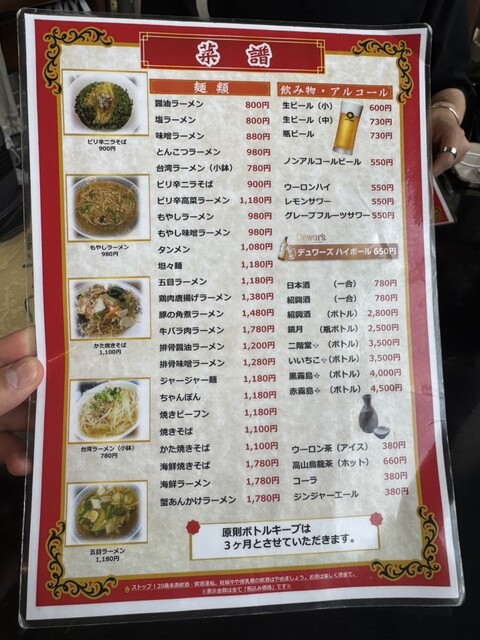 菜譜
麺類
醤油ラーメン 800円
塩ラーメン 800円
味噌ラーメン 880円
とんこつラーメン 980円
台湾ラーメン（小鉢） 780円
ピリ辛ニラそば 900円
ピリ辛高菜ラーメン 1,180円
もやしラーメン 980円
もやし味噌ラーメン 980円
タンメン 1,080円
坦々麺 1,180円
五目ラーメン 1,180円
鶏肉唐揚げラーメン 1,380円
豚の角煮ラーメン 1,480円
牛バラ肉ラーメン 1,780円
排骨醤油ラーメン 1,200円
排骨味噌ラーメン 1,280円
ジャージャー麺 1,180円
ちゃんぽん 1,180円
焼きビーフン 1,180円
焼きそば 1,100円
かた焼きそば 1,100円
海鮮焼きそば 1,780円
海鮮ラーメン 1,780円
蟹あんかけラーメン 1,780円
飲み物・アルコール
生ビール（小） 600円
生ビール（中） 730円
瓶ビール 730円
ノンアルコールビール 550円
ウーロンハイ 550円
レモンサワー 550円
グレープフルーツサワー 550円
Dewar's
デュワーズ ハイボール 650円
日本酒 （一合） 780円
紹興酒 （一合） 780円
紹興酒 （ボトル） 2,800円
鏡月 （瓶ボトル） 2,500円
二階堂 （ボトル） 3,500円
いいちこ （ボトル） 3,500円
黒霧島 （ボトル） 4,000円
赤霧島 （ボトル） 4,500円
ウーロン茶（アイス） 380円
高山烏龍茶（ホット） 660円
コーラ 380円
ジンジャーエール 380円
原則ボトルキープは
３ヶ月とさせていただきます。
ピリ辛ニラそば
900円
もやしラーメン
980円
かた焼きそば
1,100円
台湾ラーメン（小鉢）
780円
五目ラーメン
1,180円
ストップ！20歳未満飲酒・飲酒運転。妊娠中や授乳期の飲酒はやめましょう。お酒は楽しく適量で。
※表示金額は全て「税込み価格」です※